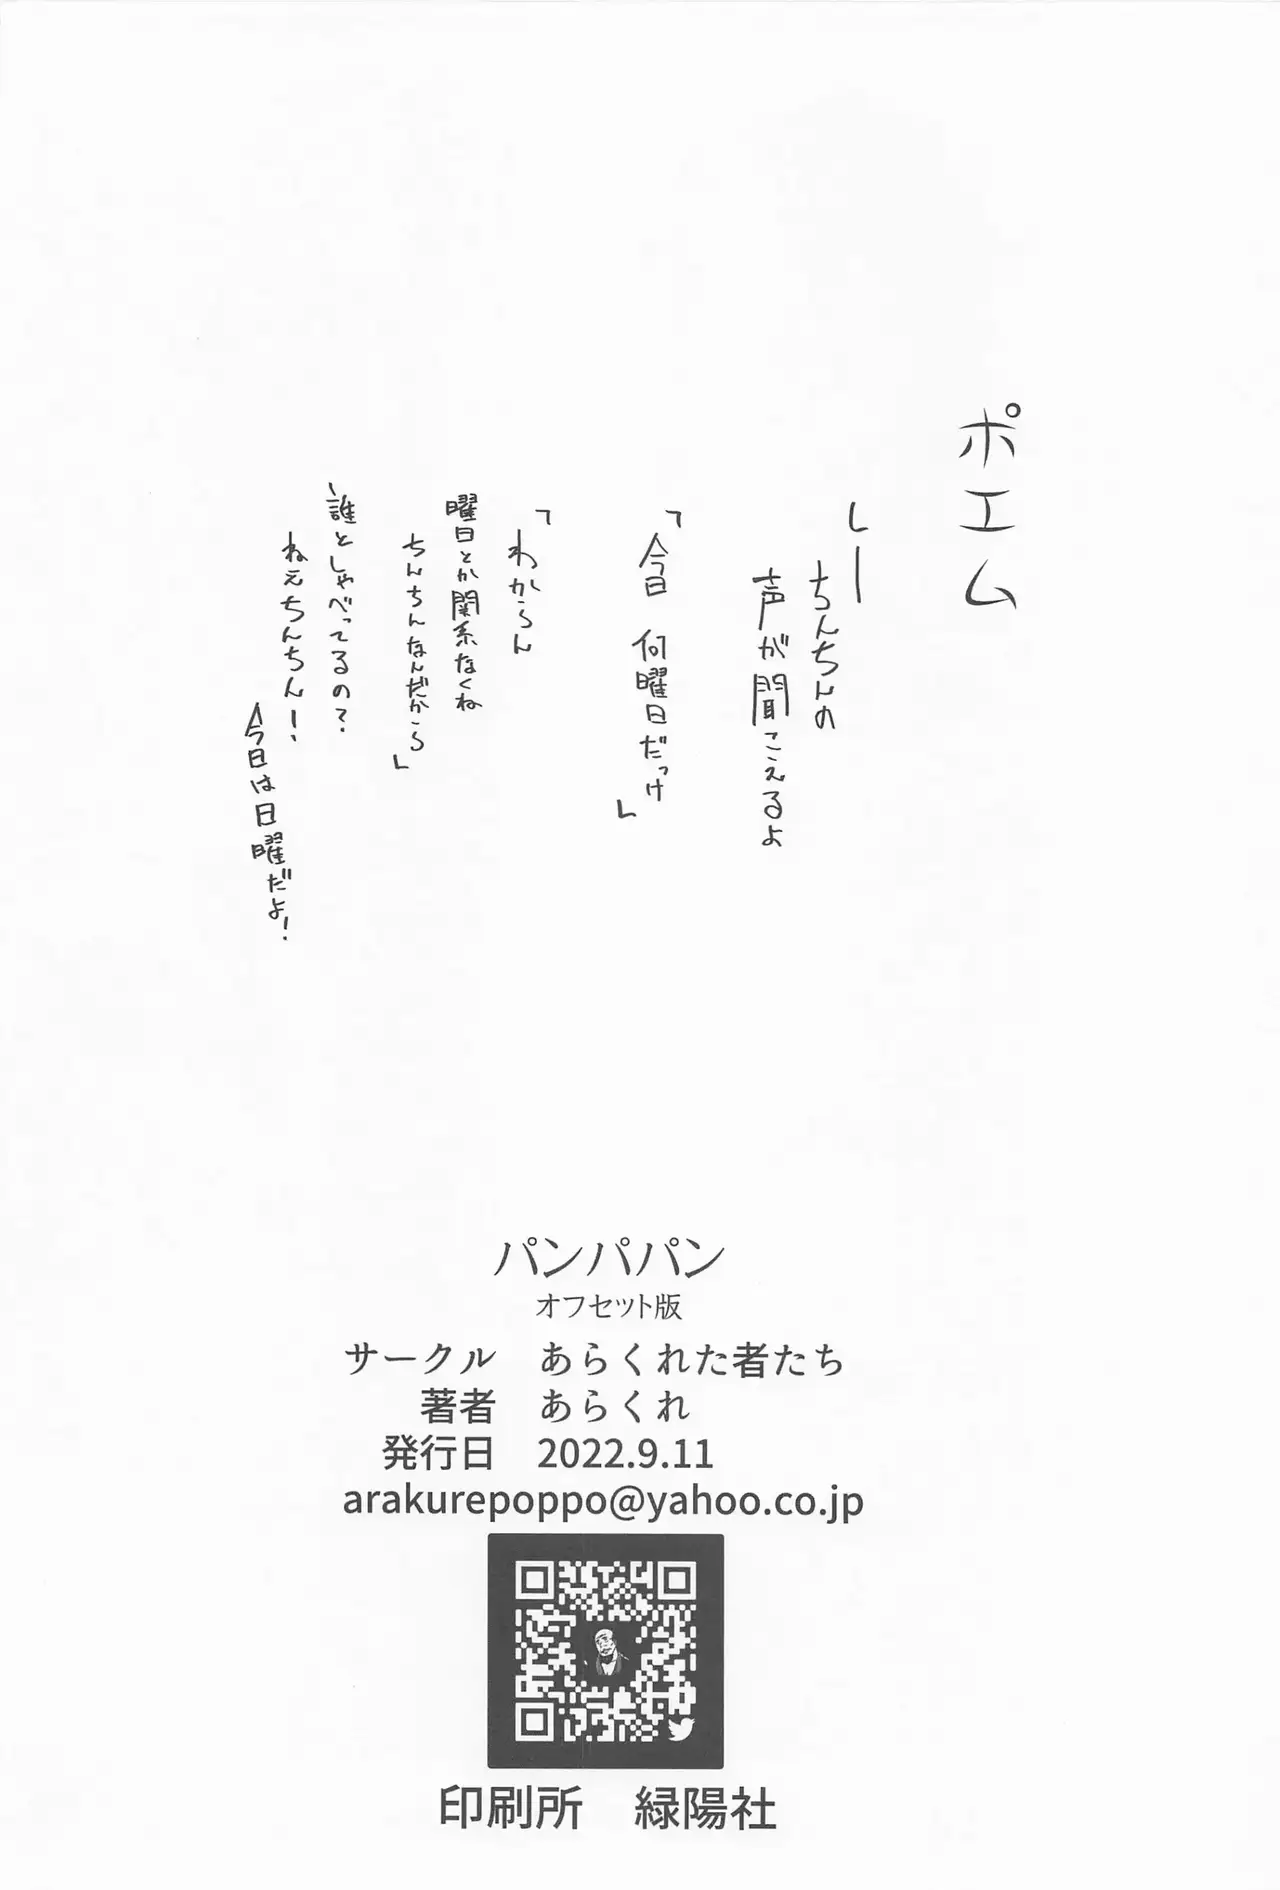 ポエム
しー
ちんちんの
声が聞こえるよ
「今日 何曜日だっけ」
「わからん
曜日とか関係なくね
ちんちんなんだから」
誰としゃべってるの？
ねえちんちん！
今日は日曜だよ！
パンパパン
オフセット版
サークル あらくれた者たち
著者 あらくれ
発行日 2022.9.11
arakurepoppo@yahoo.co.jp
印刷所 緑陽社